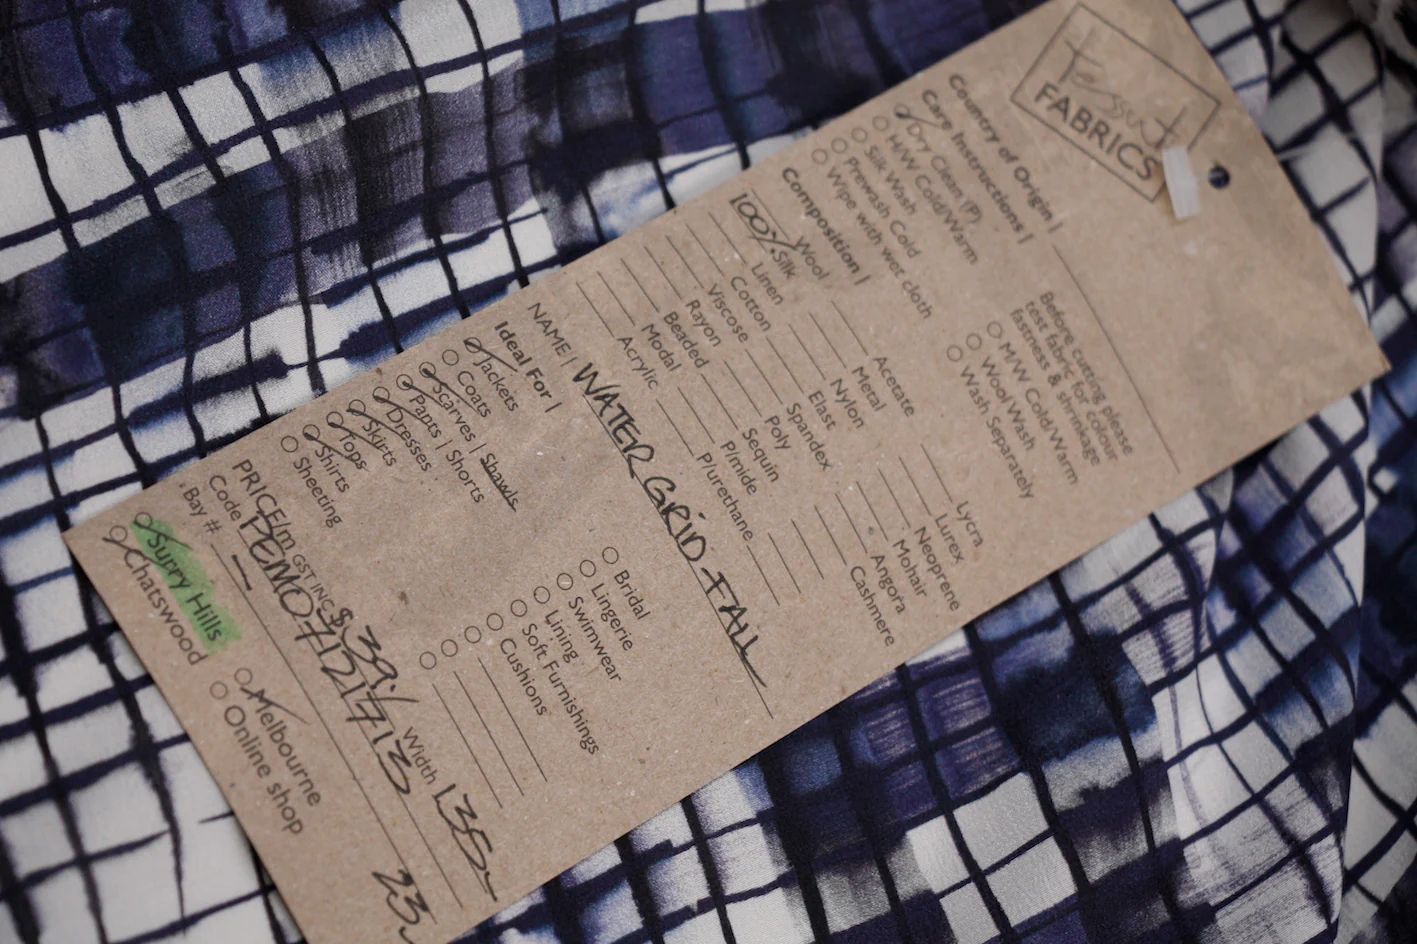 Tessuti
FABRICS
Country of Origin |
Care Instructions |
Dry Clean (P)
H/W Cold/Warm
Silk Wash
Prewash Cold
Wipe with wet cloth
Before cutting please
test fabric for colour
fastness & shrinkage
M/W Cold/Warm
Wool Wash
Wash Separately
Composition |
Wool Acetate Lycra
100% Silk Metal Lurex
Linen Nylon Neoprene
Cotton Elast Mohair
Viscose Spandex Angora
Rayon Poly Cashmere
Beaded Sequin
Modal P/mide
Acrylic P/urethane
NAME | WATER GRID-FALL
Ideal For |
Jackets Bridal
Coats Lingerie
Scarves | Shawls Swimwear
Pants | Shorts Lining
Dresses Soft Furnishings
Skirts Cushions
Tops
Shirts
Sheeting
PRICE/m GST INC $ 39.- Width 135
Code
Bay # - 23
Surry Hills Melbourne
Chatswood Online shop